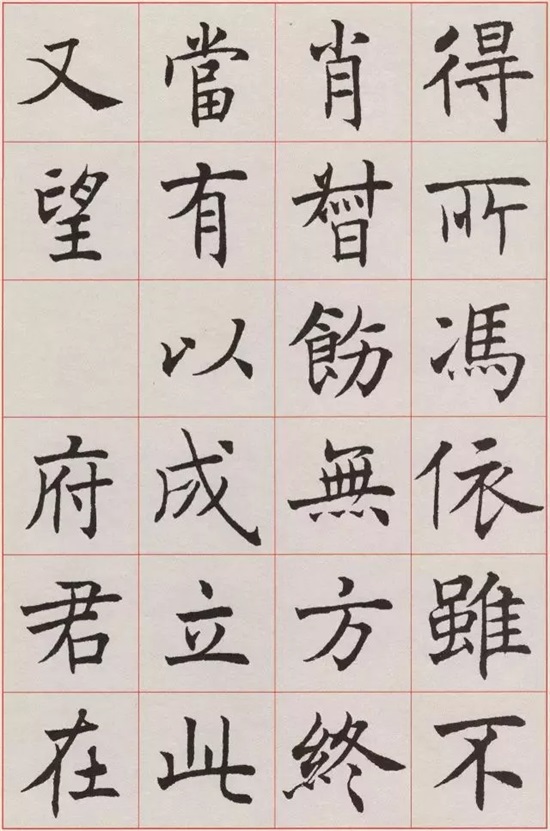 得所馮依雖不
肖督飭無方終
當有以成立此
又望　府君在